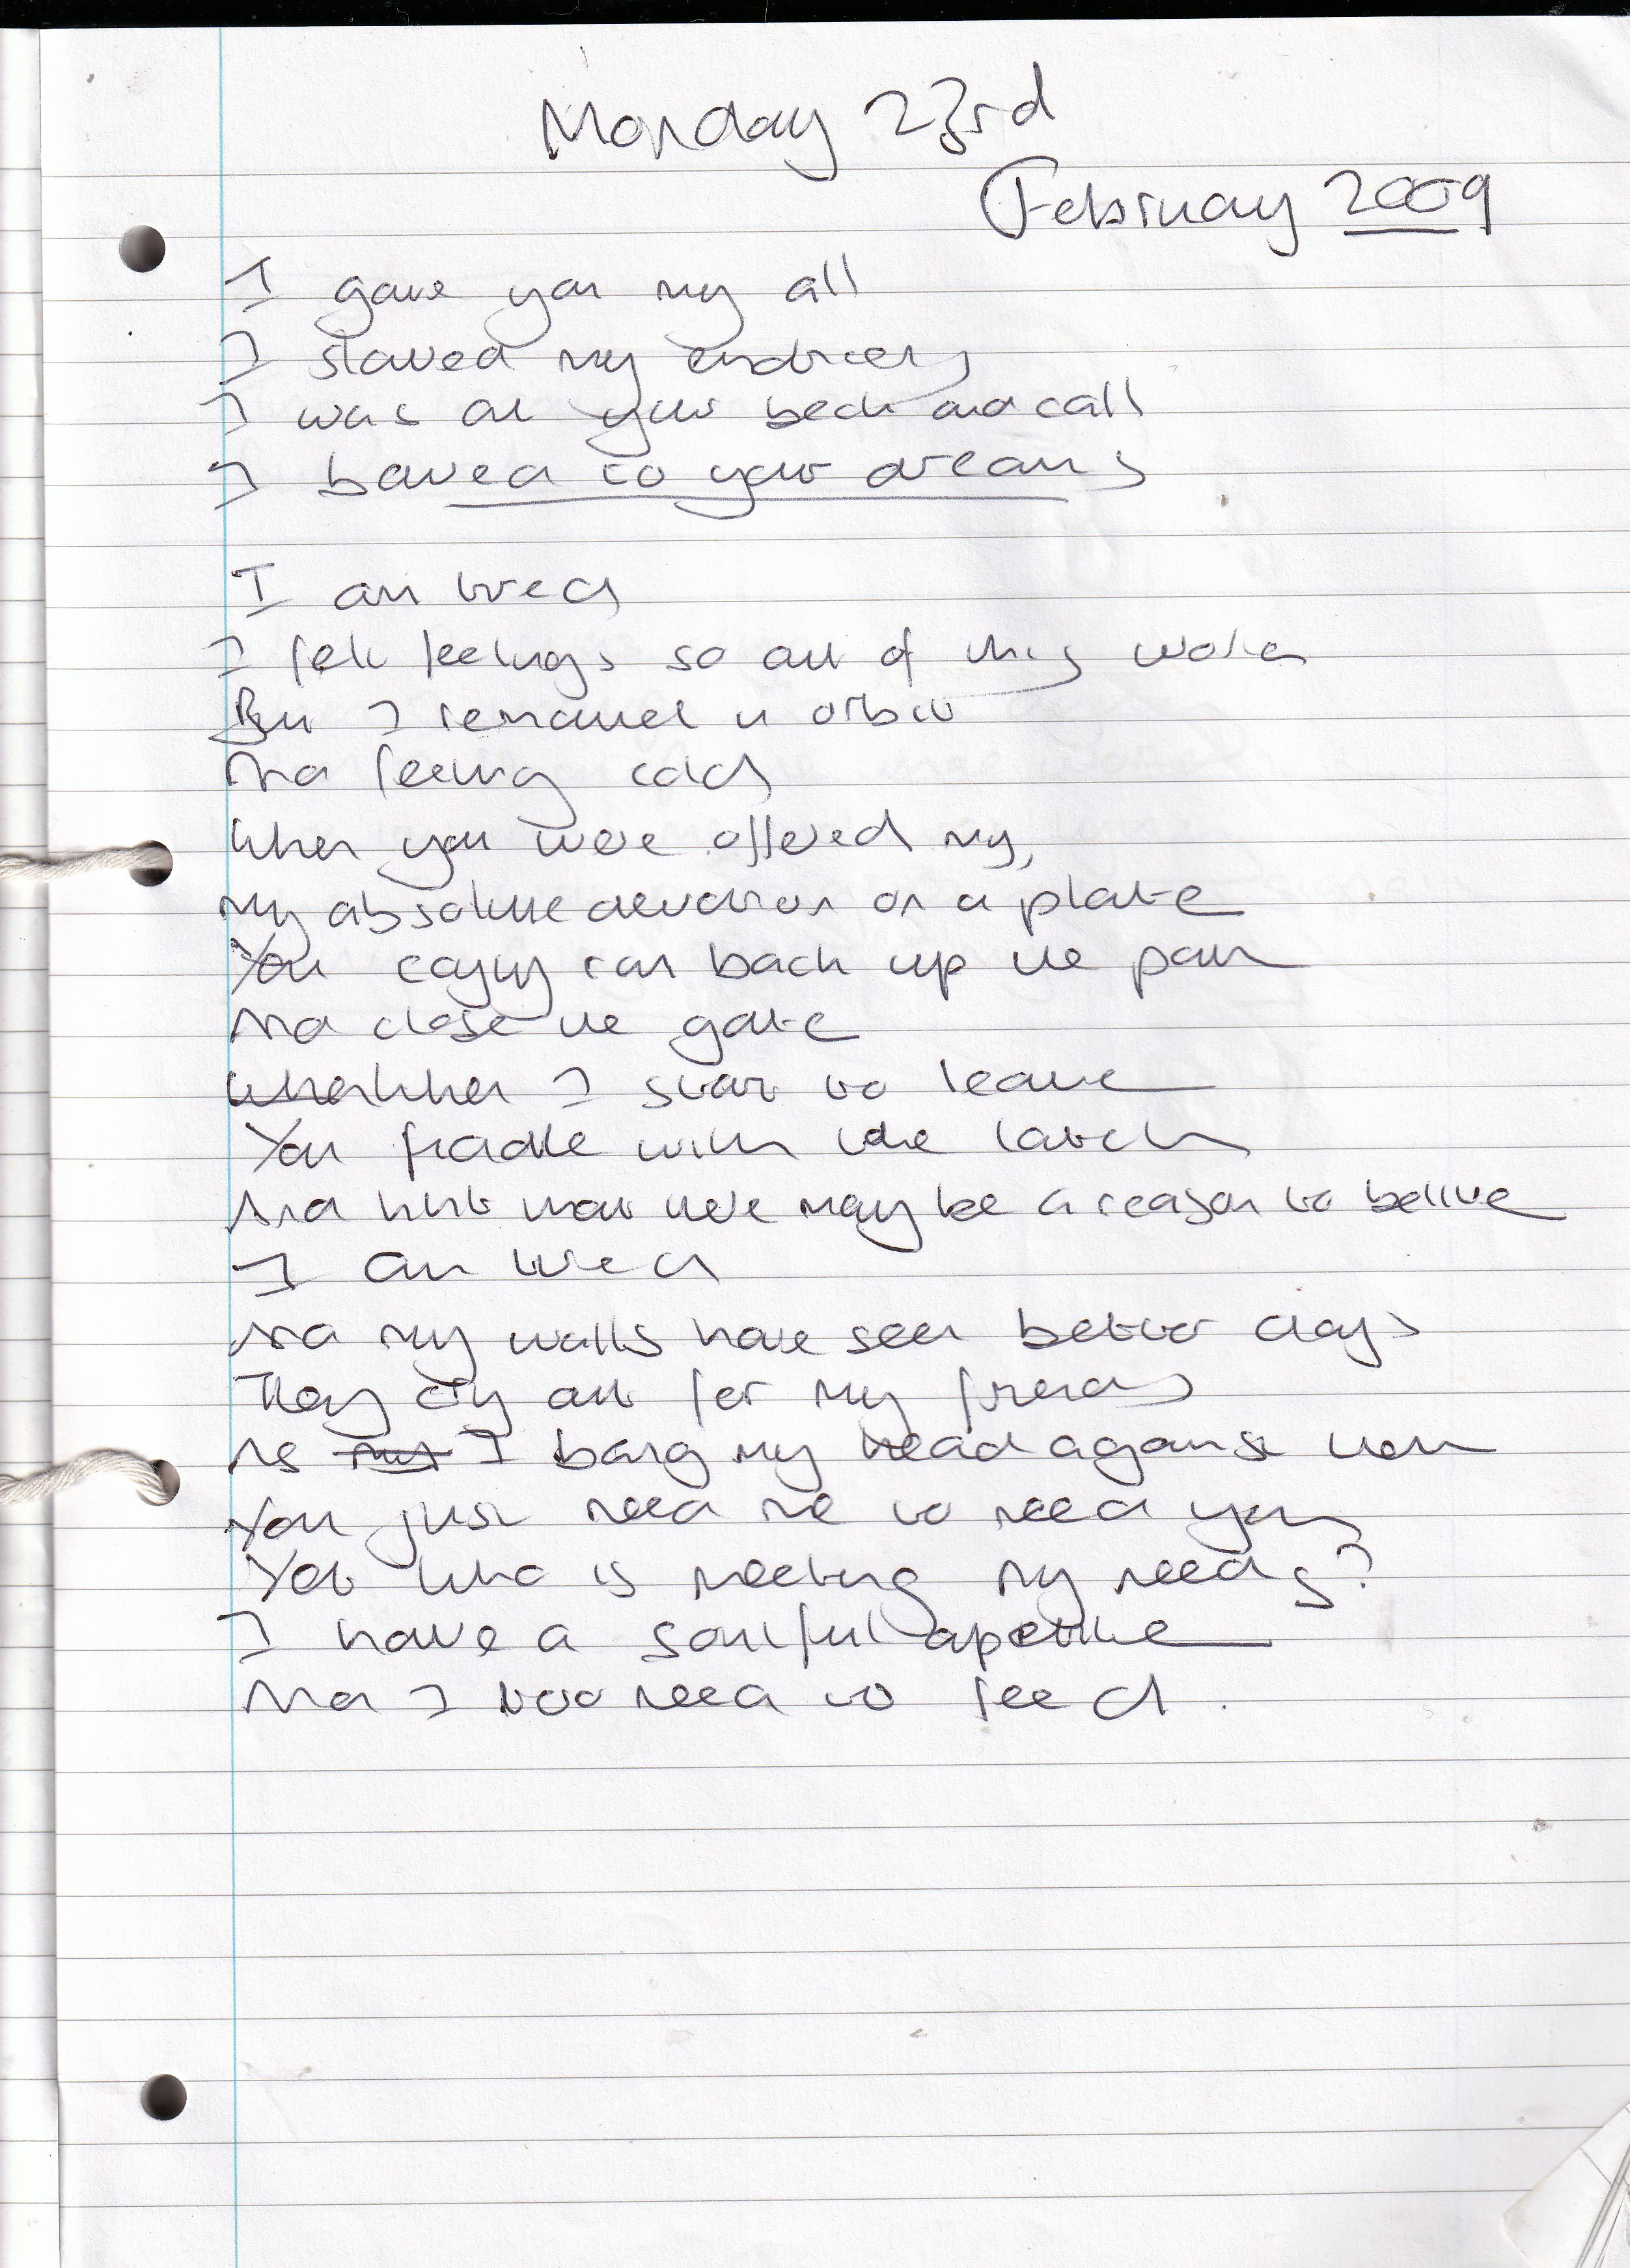 Monday 23rd
February 2009
I gave you my all
I slaved my
I was at your beck and call
I bowed to your dreams
I am tired
I felt feelings so out of this world
But I remained in orbit
And feeling cold
When you were offered my,
my absolute devotion on a plate
You coyly ran back up the path
And close the gate
When I start to leave
You fiddle with the latch
And hint that there may be a reason to belive
I am tired
And my walls have seen better days
They cry out for my friends
As I bang my head against them
You just need me to need you
Yet who is meeting my needs?
I have a soulful apetite
And I too need to feed.